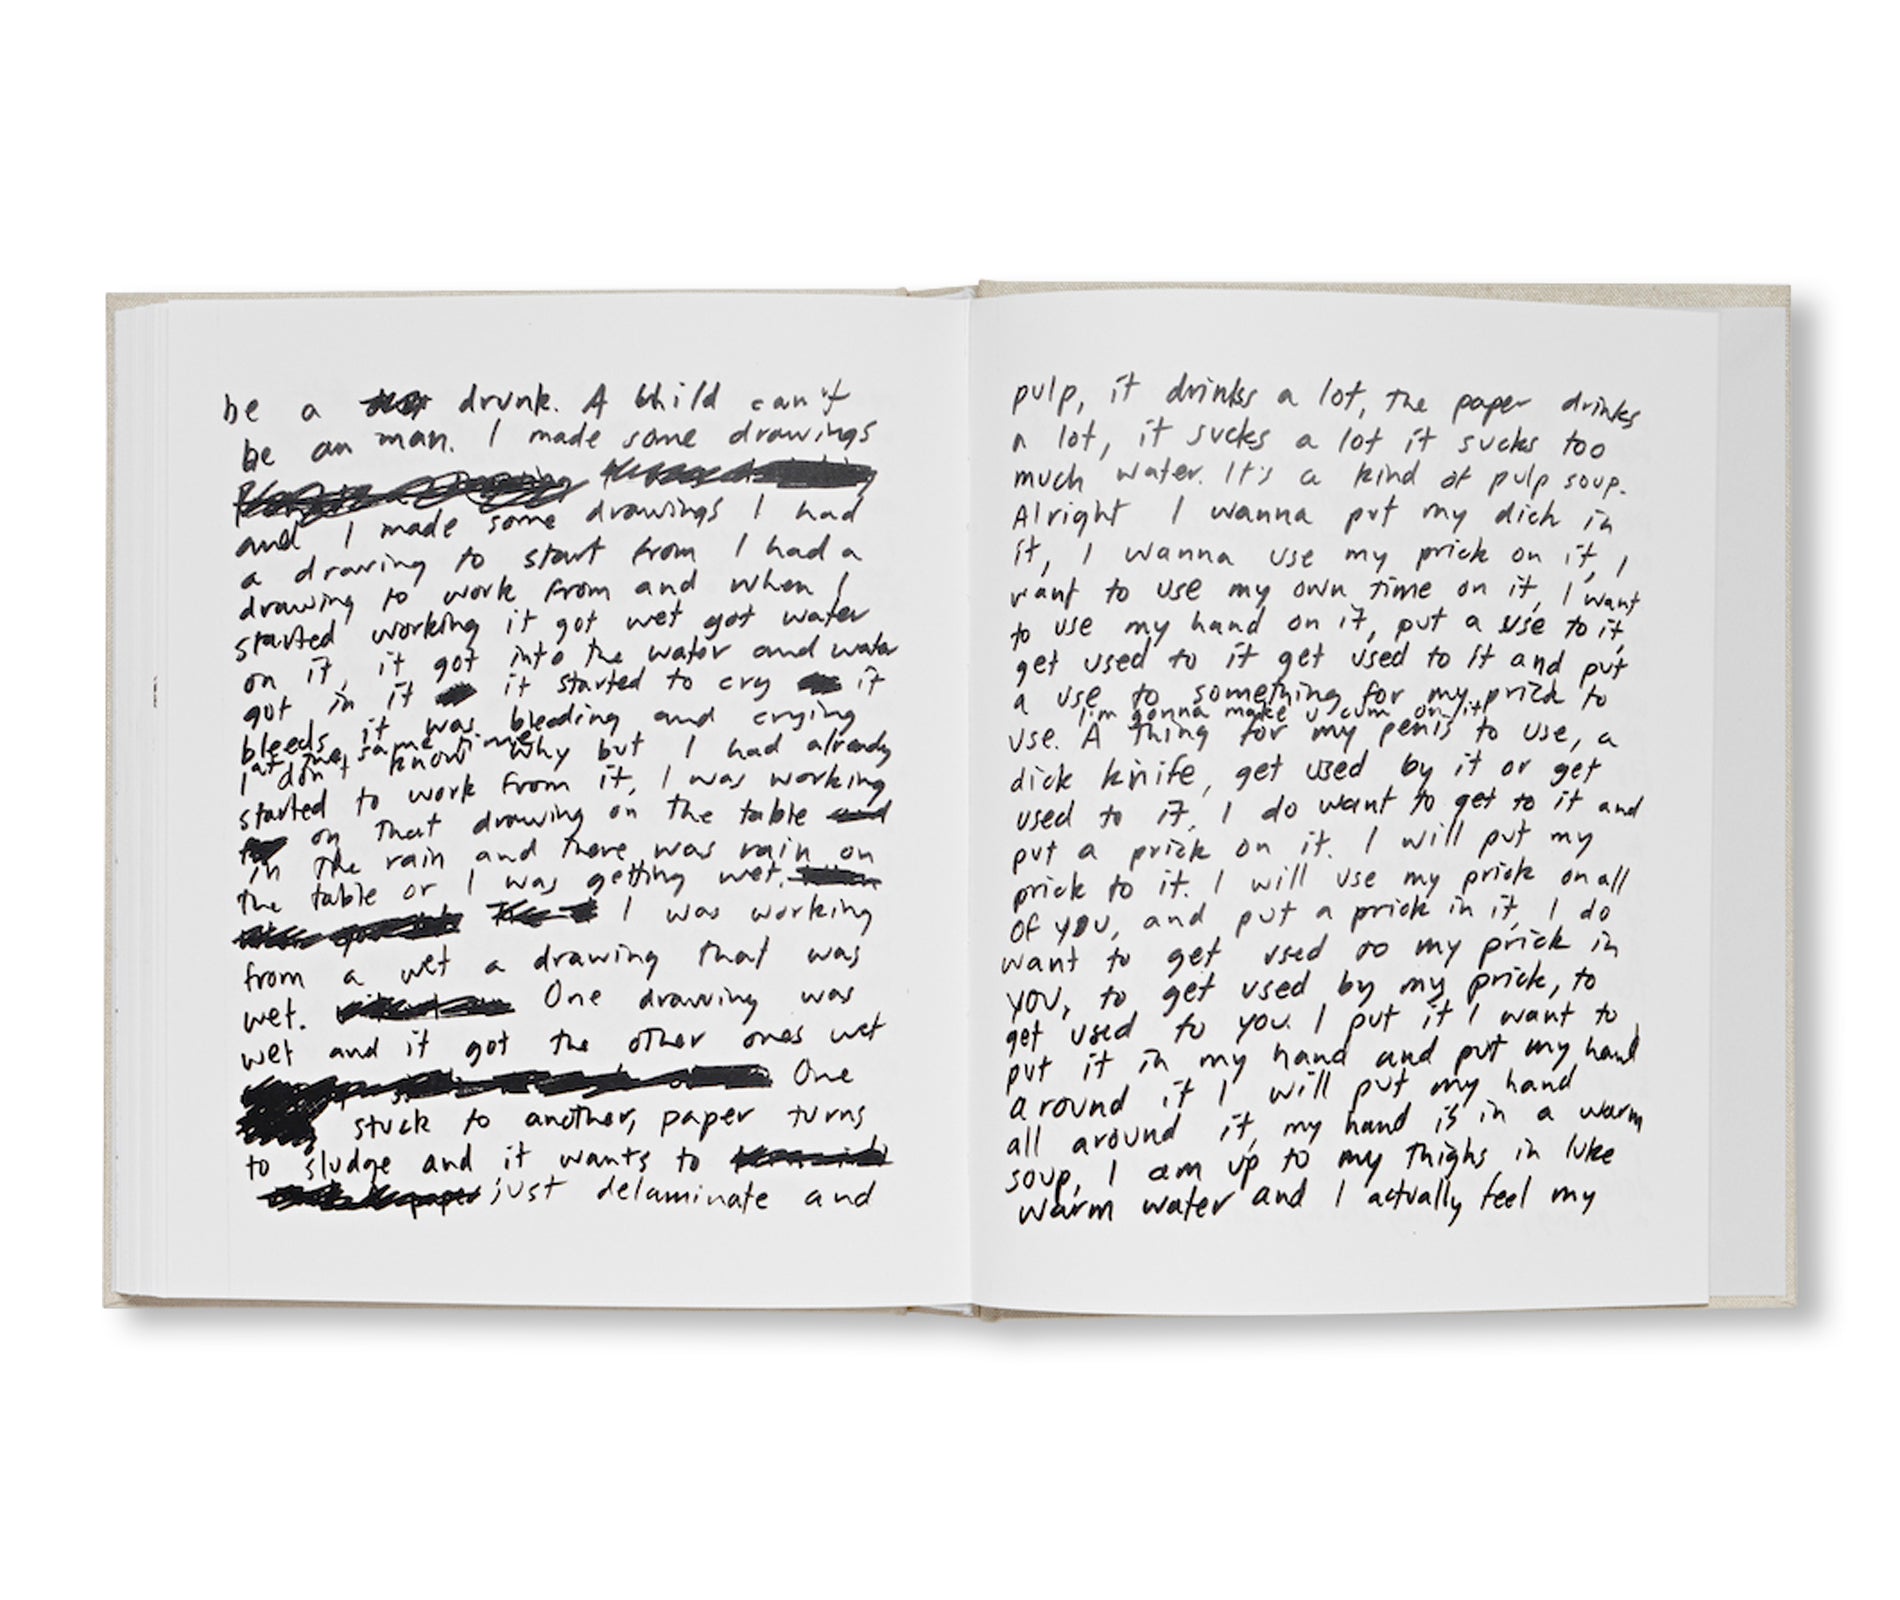 be a drunk. A child can't
be an man. I made some drawings
and I made some drawings I had
a drawing to start from I had a
drawing to work from and when I
started working it got wet got water
on it, it got into the water and water
got in it it started to cry it
bleeds it was bleeding and crying
at the same time
I don't know why but I had already
started to work from it, I was working
on that drawing on the table and
in the rain and there was rain on
the table or I was getting wet.
I was working
from a wet a drawing that was
wet. One drawing was
wet and it got the other ones wet
One
stuck to another, paper turns
to sludge and it wants to
paper just delaminate and
pulp, it drinks a lot, the paper drinks
a lot, it sucks a lot it sucks too
much water. It's a kind of pulp soup.
Alright I wanna put my dick in
it, I wanna use my prick on it, I
want to use my own time on it, I want
to use my hand on it, put a use to it,
get used to it get used to it and put
a use to something for my prick to
I'm gonna make u cum on it
use. A thing for my penis to use, a
dick knife, get used by it or get
used to it, I do want to get to it and
put a prick on it. I will put my
prick to it. I will use my prick on all
of you, and put a prick in it, I do
want to get used to my prick in
you, to get used by my prick, to
get used to you. I put it I want to
put it in my hand and put my hand
around it I will put my hand
all around it, my hand is in a warm
soup, I am up to my thighs in luke
warm water and I actually feel my